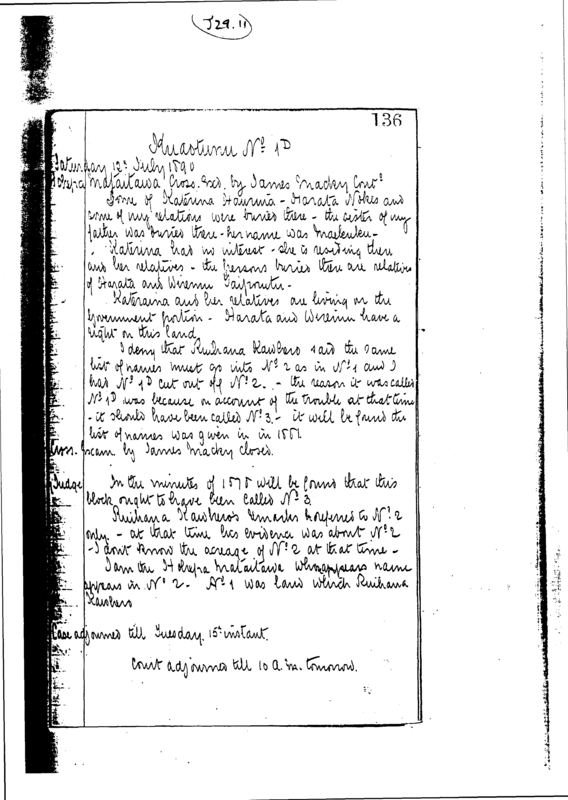 J29.11
136
Kuaotunu No 1D
Saturday 12th July 1890
Hohepa Mataitawa Cross. Exd. by James Macky Contd
Some of Katerina Hauruia - Harata Nokes and
some of my relations were buried there - the sister of my
father was buried there - her name was
Katerina had no interest - she is residing there
and her relatives - the persons buried there are relatives
of Harata and Wiremu
Kateraina and her relatives are living on the
Government portion - Harata and Wiremu have a
right on this land
I deny that Ruihana Kawhero said the same
list of names must go into No 2 as in No 1 and I
had No 1D cut out of No 2. - the reason it was called
No 1D was because on account of the trouble at that time
- it should have been called No 3. - it will be found the
list of names was given in in
Cross. Exam by James Macky closed.
Judge In the minutes of 1878 will be found that this
block ought to have been called No 3
Ruihana Kawhero's remarks referred to No 2
only - at that time his evidence was about No 2
- I dont know the acreage of No 2 at that time -
I am the Hohepa Mataitawa whose name
appears in No 2. - No 1 was land which Ruihana
Kawhero
Case adjourned till Tuesday. 15th instant.
Court adjourned till 10 a.m. tomorrow.